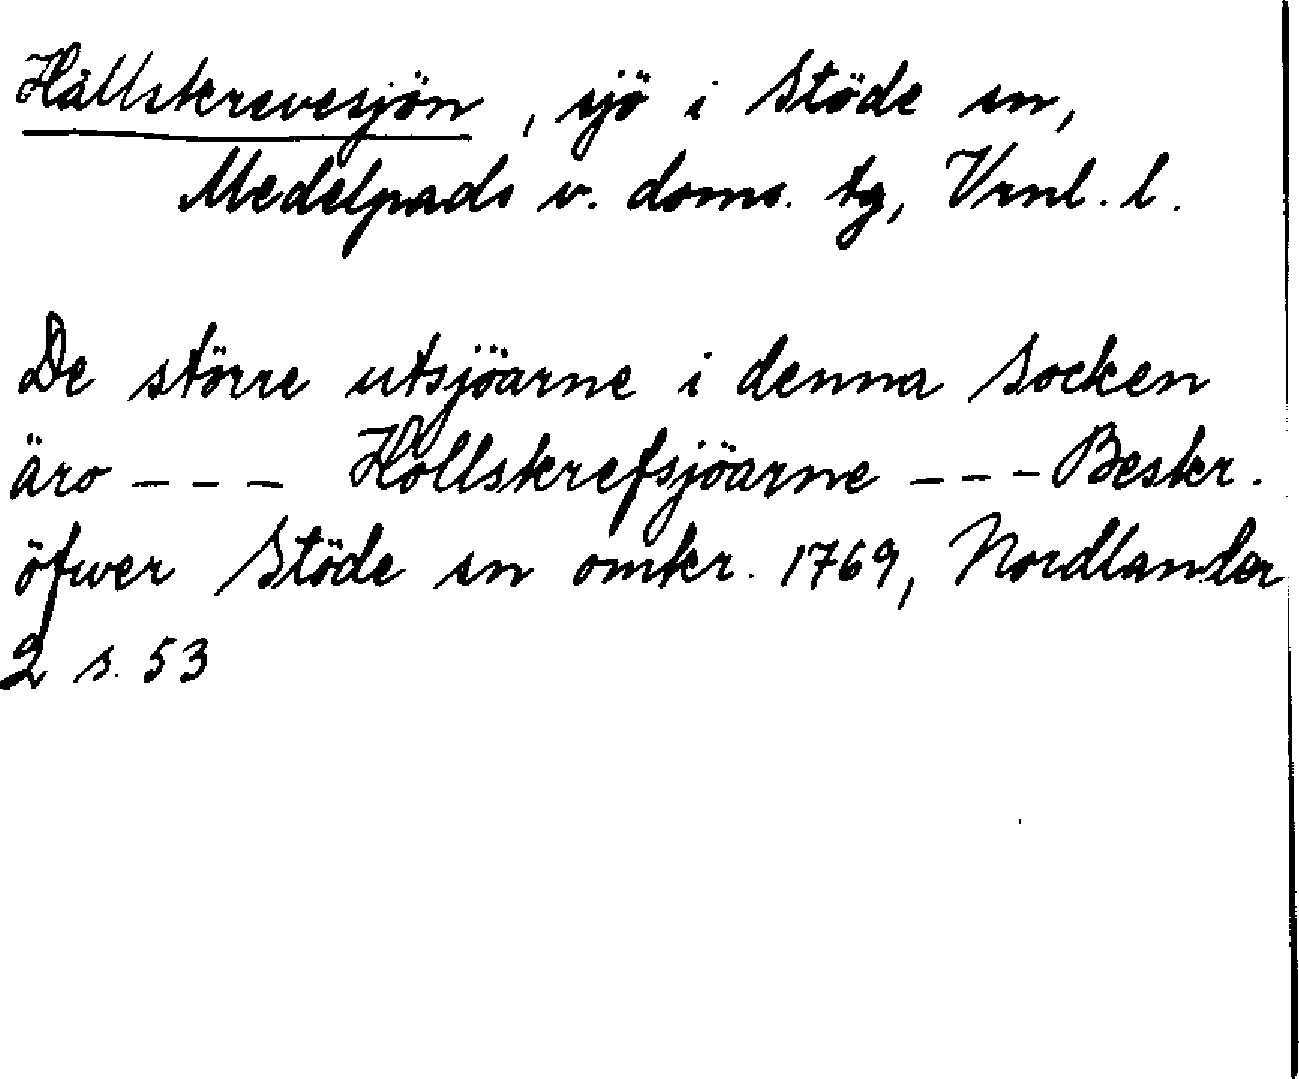 Hållskrevesjön, sjö i Stöde sn,
Medelpads v. doms. tg, Vrnl. l.
De större utsjöarne i denna Socken
äro --- Hollskrefsjöarne --- Beskr.
öfwer Stöde sn omkr. 1769, Nordlander
2 s. 53